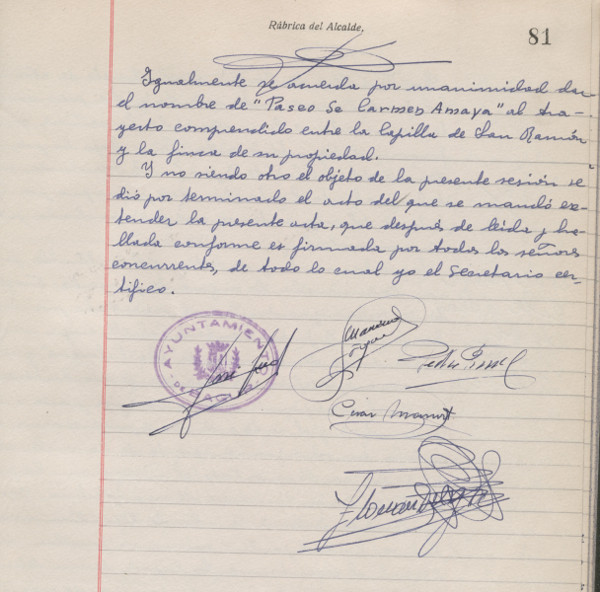 Rúbrica del Alcalde,
81
Igualmente se acuerda por unanimidad dar
el nombre de "Paseo de Carmen Amaya" al tra-
yecto comprendido entre la Capilla de San Ramón
y la finca de su propiedad.
Y no siendo otro el objeto de la presente sesión se
dió por terminado el acto del que se mandó ex-
tender la presente acta, que después de leída y ha-
llada conforme es firmada por todos los señores
concurrentes, de todo lo cual yo el Secretario cer-
tifico.
AYUNTAMIENTO
DE BAGUR